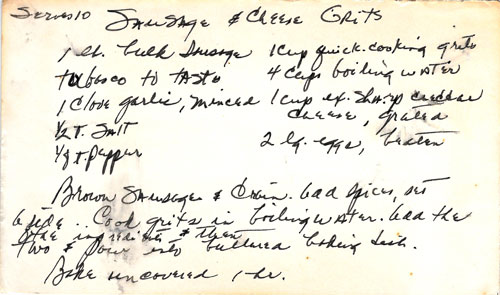 Serves 10 Sausage & Cheese Grits
1 lb. bulk sausage 1 cup quick-cooking grits
tabasco to taste 4 cups boiling water
1 clove garlic, minced 1 cup ex. sharp cheddar
½ t. salt cheese, grated
⅛ t. pepper 2 lg. eggs, beaten
Brown sausage & drain. Add spices, set
aside. Cook grits in boiling water. Add the
other ingredients & then
two & pour into buttered baking dish.
Bake uncovered 1 hr.